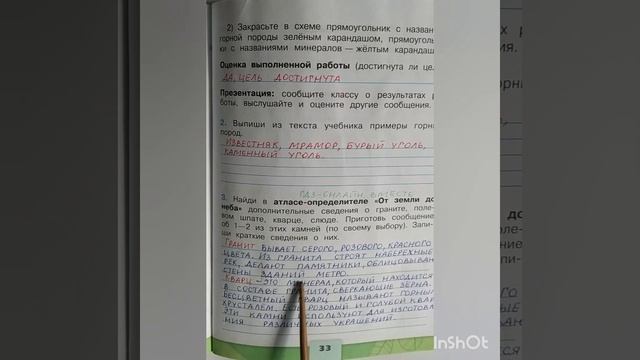 2) Закрасьте в схеме прямоугольник с назван
горной породы зелёным карандашом, прямоуголь
ки с названиями минералов — жёлтым карандаш
Оценка выполненной работы (достигнута ли цел
ДА, ЦЕЛЬ ДОСТИГНУТА
Презентация: сообщите классу о результатах р
боты, выслушайте и оцените другие сообщения.
2. Выпиши из текста учебника примеры горн
пород.
ИЗВЕСТНЯК, МРАМОР, БУРЫЙ УГОЛЬ,
КАМЕННЫЙ УГОЛЬ.
ГДЗ-ОНЛАЙН ВМЕСТЕ
3. Найди в атласе-определителе «От земли до
неба» дополнительные сведения о граните, поле-
вом шпате, кварце, слюде. Приготовь сообщение
об 1—2 из этих камней (по своему выбору). Запи-
ши краткие сведения о них.
ГРАНИТ БЫВАЕТ СЕРОГО, РОЗОВОГО, КРАСНОГО
ЦВЕТА. ИЗ ГРАНИТА СТРОЯТ НАБЕРЕЖНЫЕ
РЕК, ДЕЛАЮТ ПАМЯТНИКИ, ОБЛИЦОВЫВАЮ
СТЕНЫ ЗДАНИЙ МЕТРО.
КВАРЦ - ЭТО МИНЕРАЛ, КОТОРЫЙ НАХОДИТСЯ
В СОСТАВЕ ГРАНИТА, СВЕРКАЮЩИЕ ЗЕРНА.
БЕСЦВЕТНЫЙ КВАРЦ НАЗЫВАЮТ ГОРНЫМ
ХРУСТАЛЕМ, ЕСТЬ РОЗОВЫЙ И ГОЛУБОЙ КВАР
ЭТИ КАМНИ ИСПОЛЬЗУЮТ ДЛЯ ИЗГОТОВЛ
НИЯ РАЗЛИЧНЫХ УКРАШЕНИЙ.
33
InShOt